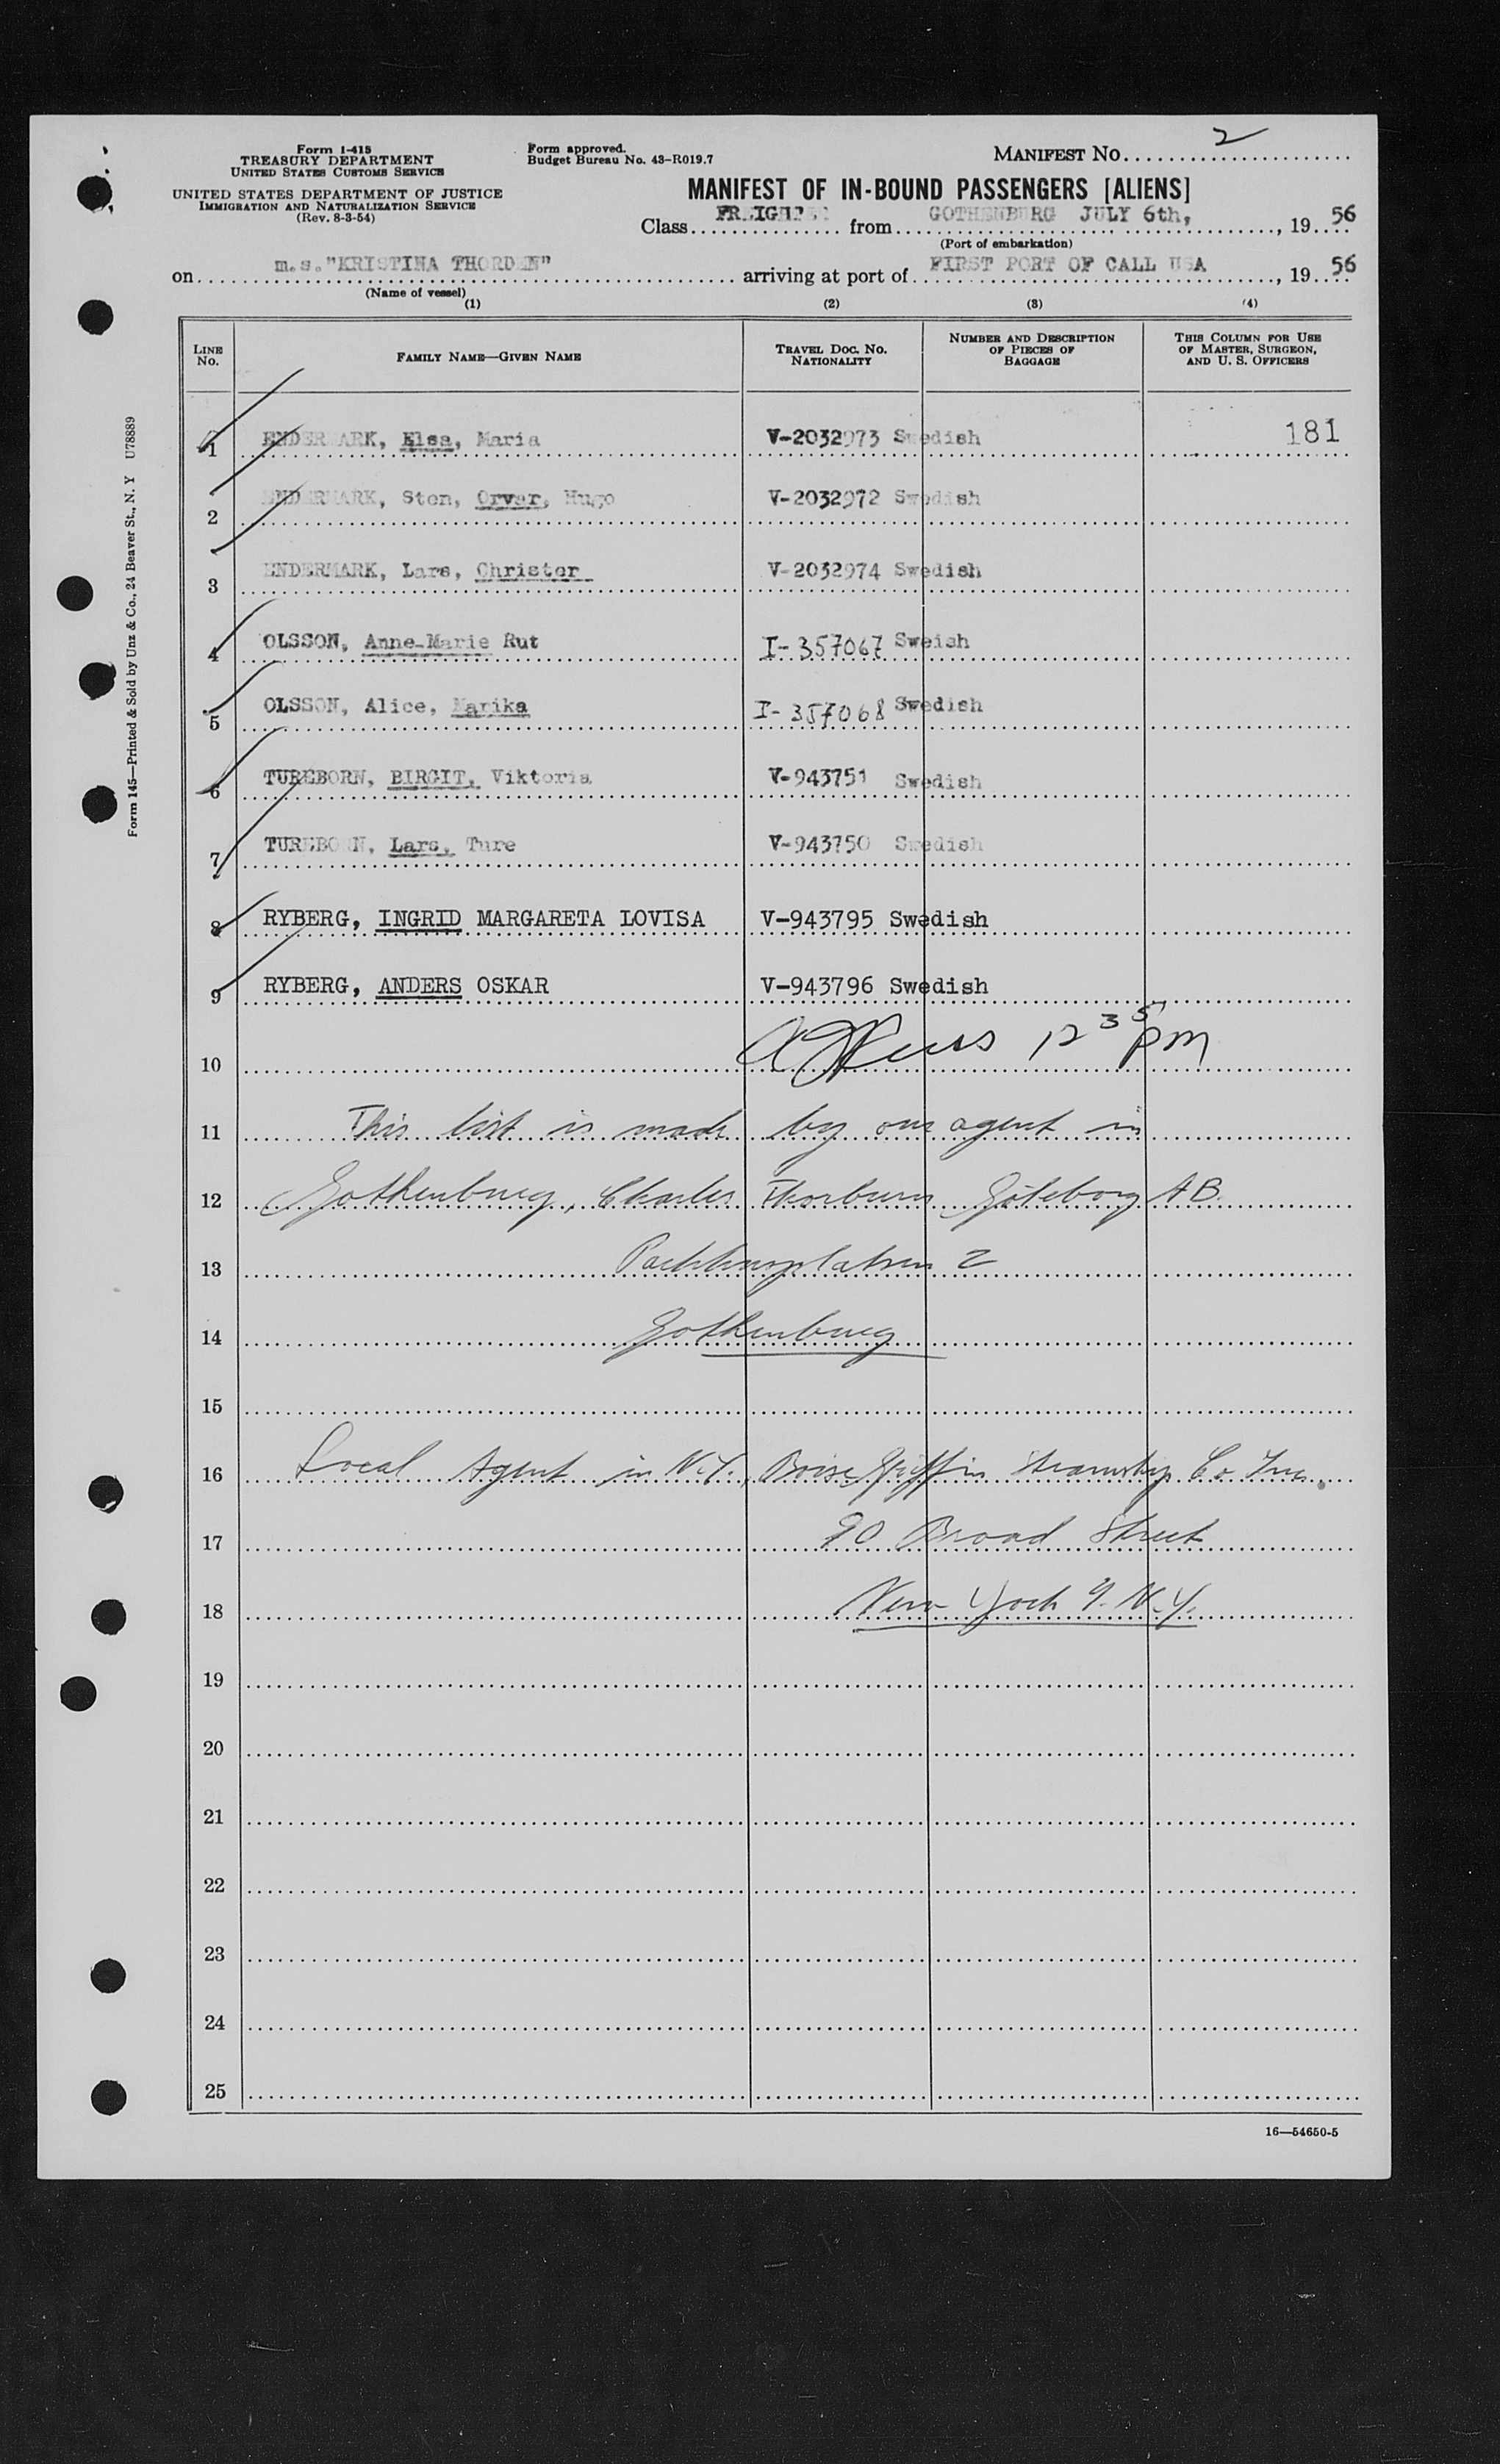 Form I-415
TREASURY DEPARTMENT
UNITED STATES CUSTOMS SERVICE
UNITED STATES DEPARTMENT OF JUSTICE
IMMIGRATION AND NATURALIZATION SERVICE
(Rev. 8-3-54)
Form approved.
Budget Bureau No. 43-R019.7
MANIFEST No. 2
MANIFEST OF IN-BOUND PASSENGERS [ALIENS]
Class FREIGHTER from GOTHENBURG JULY 6th, , 19 56
(Port of embarkation)
on m.s."KRISTINA THORDEN" arriving at port of FIRST PORT OF CALL USA , 19 56
(Name of vessel)
(1) (2) (3) (4)
LINE No. FAMILY NAME—GIVEN NAME TRAVEL DOC. NO. NATIONALITY NUMBER AND DESCRIPTION OF PIECES OF BAGGAGE THIS COLUMN FOR USE OF MASTER, SURGEON, AND U. S. OFFICERS
1 ENDERMARK, Elsa, Maria V-2032973 Swedish 181
2 ENDERMARK, Sten, Orvar, Hugo V-2032972 Swedish
3 ENDERMARK, Lars, Christer V-2032974 Swedish
4 OLSSON, Anne-Marie Rut I-357067 Sweish
5 OLSSON, Alice, Marika I-357068 Swedish
6 TUREBORN, BIRGIT, Viktoria V-943751 Swedish
7 TUREBORN, Lars, Ture V-943750 Swedish
8 RYBERG, INGRID MARGARETA LOVISA V-943795 Swedish
9 RYBERG, ANDERS OSKAR V-943796 Swedish
10 12 35 pm
11 This list is made by our agent in
12 Gothenburg, Charles Thorburn Göteborg AB.
13 Packhusplatsen 2
14 Gothenburg
15
16 Local Agent in N.Y., Boise Griffin Steamship Co Inc.
17 90 Broad Street
18 New York 4. N.Y.
19
20
21
22
23
24
25
16—54650-5
Form 145—Printed & Sold by Unz & Co., 24 Beaver St., N. Y U78889